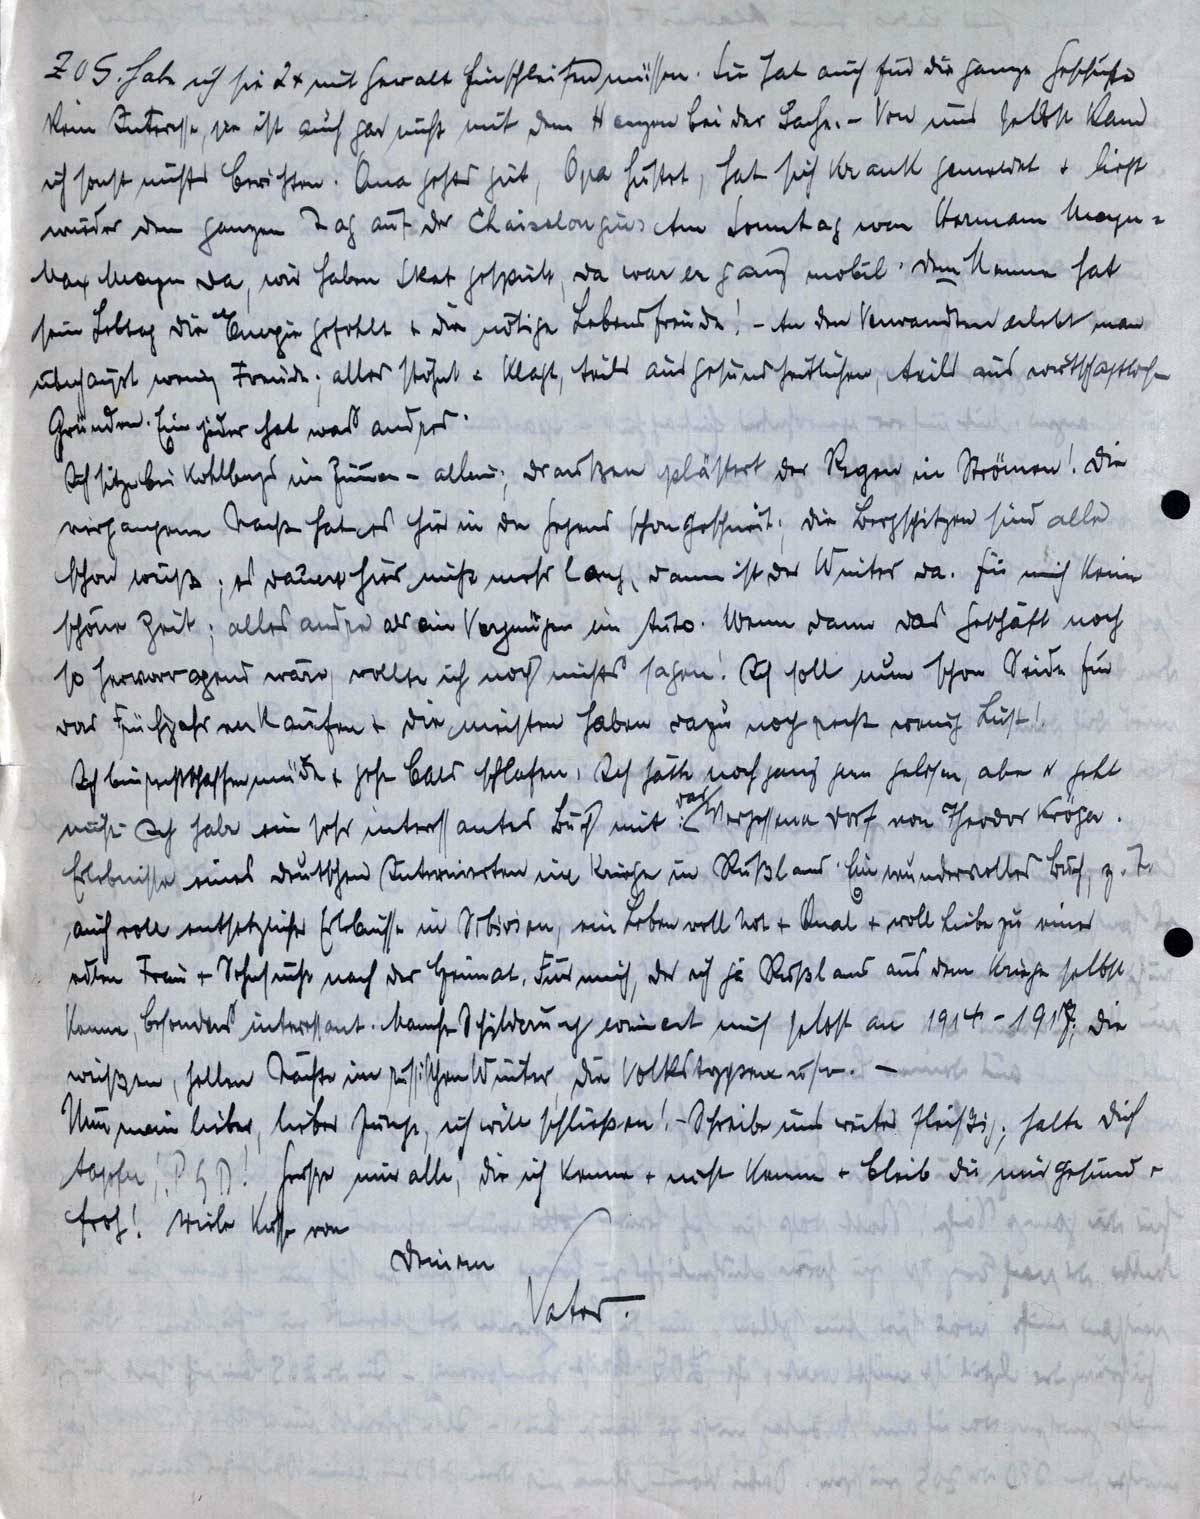 ZOG. habe ich sie 2x mit Gewalt hinschleifen müssen. Sie hat auch für die ganze Geschichte
kein Interesse, sie ist auch gar nicht mit dem Herzen bei der Sache. – Von uns selbst kann
ich sonst nichts berichten. Oma gehts gut, Opa hustet, hat sich krank gemeldet + liegt
wieder den ganzen Tag auf der Chaiselongue. Am Sonntag war Hermann Mayer =
Max Mayer da, wir haben Skat gespielt, da war er ganz mobil. Dem Manne hat
sein Lebtag die Energie gefehlt + die nötige Lebensfreude! – An den Verwandten erlebt man
überhaupt wenig Freude; alles stöhnt + klagt, teils aus gesundheitlichen, teils aus wirtschaftlichen
Gründen. Ein jeder hat was andres.
Ich sitze bei Kohlbergs im Zimmer – allein; draussen plästert der Regen in Strömen! Die
vergangene Nacht hat es hier in der Gegend schon geschneit; die Bergspitzen sind alle
schon weiß; es dauert hier nicht mehr lang, dann ist der Winter da. Für mich keine
schöne Zeit; alles andre als ein Vergnügen im Auto. Wenn dann das Geschäft noch
so hervorragend wäre, wollte ich noch nichts sagen! Ich soll nun schon Seide für
das Frühjahr verkaufen + die meisten haben dazu noch recht wenig Lust!
Ich bin rechtschaffen müde + gehe bald schlafen. Ich hätte noch ganz gern gelesen, aber es geht
nicht. Ich habe ein sehr interessantes Buch mit: Das Vergessene Dorf von Theodor Kröger.
Erlebnisse eines deutschen Internierten im Kriege in Rußland. Ein wundervolles Buch, z. T.
auch voll entsetzlicher Erlebnisse in Sibirien, ein Leben voll Not + Qual + voll Liebe zu einer
edlen Frau + Sehnsucht nach der Heimat. Für mich, der ich ja Rußland aus dem Kriege selbst
kenne, besonders interessant. Manche Schilderung erinnert mich selbst an 1914–1917, die
weißen, hellen Nächte im russischen Winter, die Volkstypen usw. –
Nun mein lieber, lieber Junge, ich will schließen! – Schreibe uns weiter fleißig; halte Dich
tapfer! Grüße mir alle, die ich kenne + nicht kenne + bleib Du mir gesund +
froh! Viele Küsse von
Deinem
Vater.